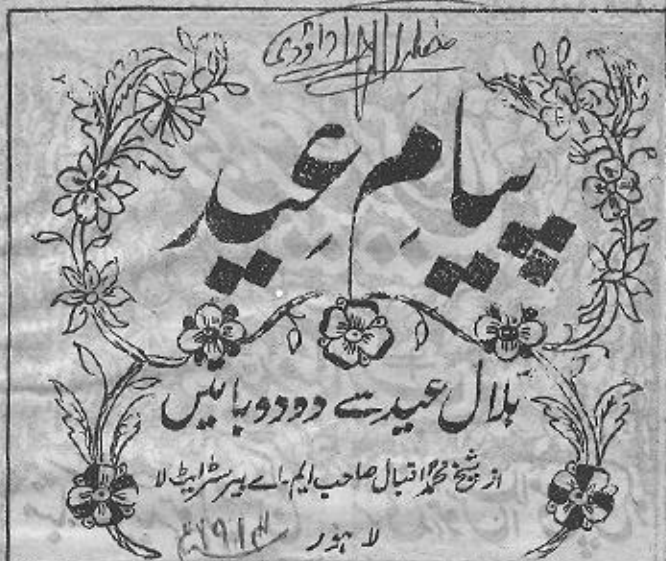 داؤدی
پیامِ عید
ہلال عید سے دو دو باتیں
از شیخ محمد اقبال صاحب ایم۔اے بیرسٹرایٹ لا
لاہور